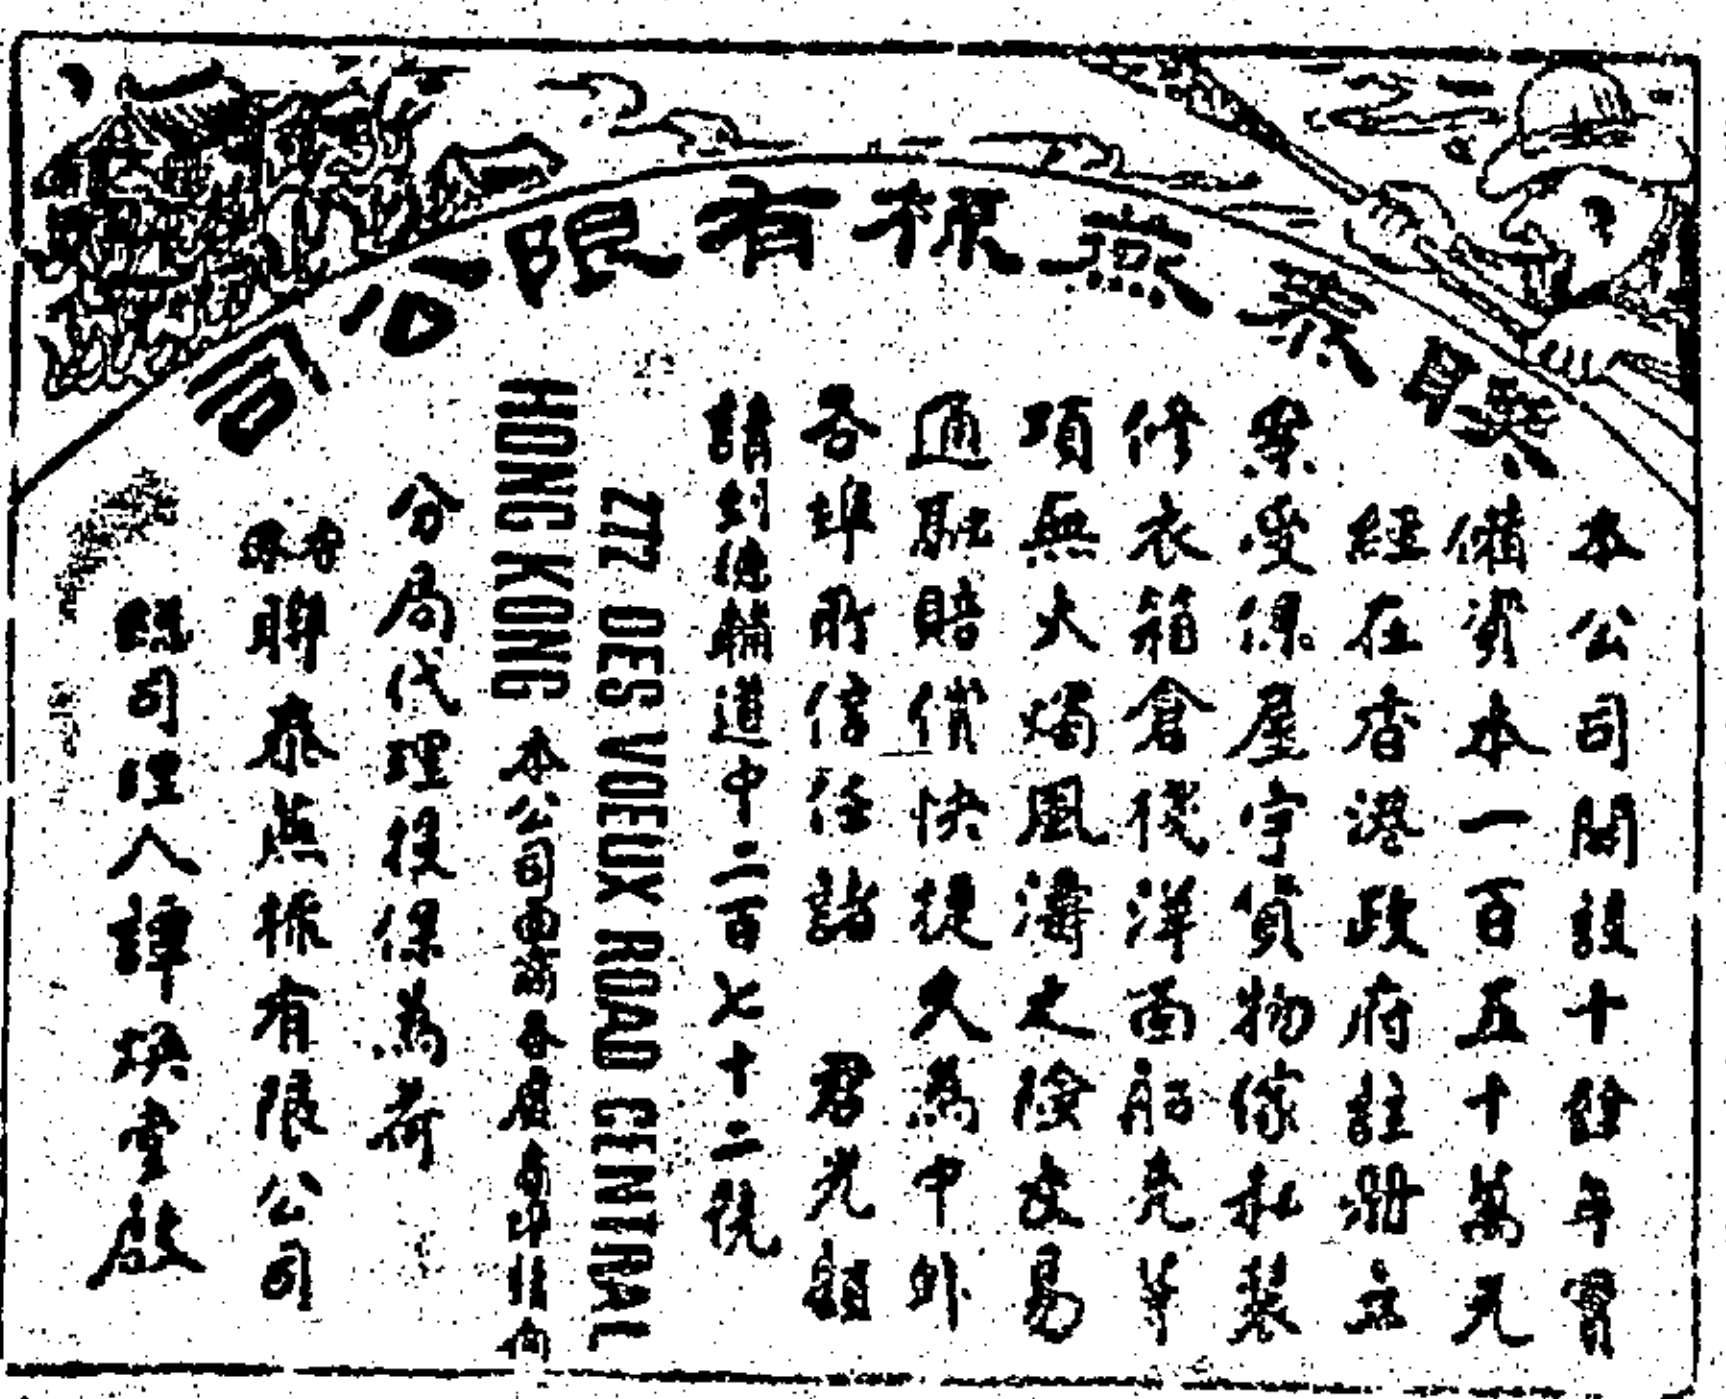 聯泰燕梳有限公司
本公司開設十餘年實
備資本一百五十萬元
經在香港政府註冊立
案受保屋宇貨物傢私裝
修衣箱倉棧洋面船壳等
項無火燭風濤之險交易
通融賠償快捷久爲中外
各埠所信任諸 君光顧
請到德輔道中二百七十二號
272 DES VOEUX ROAD CENTRAL
HONG KONG 本公司各屬埠向
分局代理投保爲荷
香港聯泰燕梳有限公司
總司理人譚煥堂啟